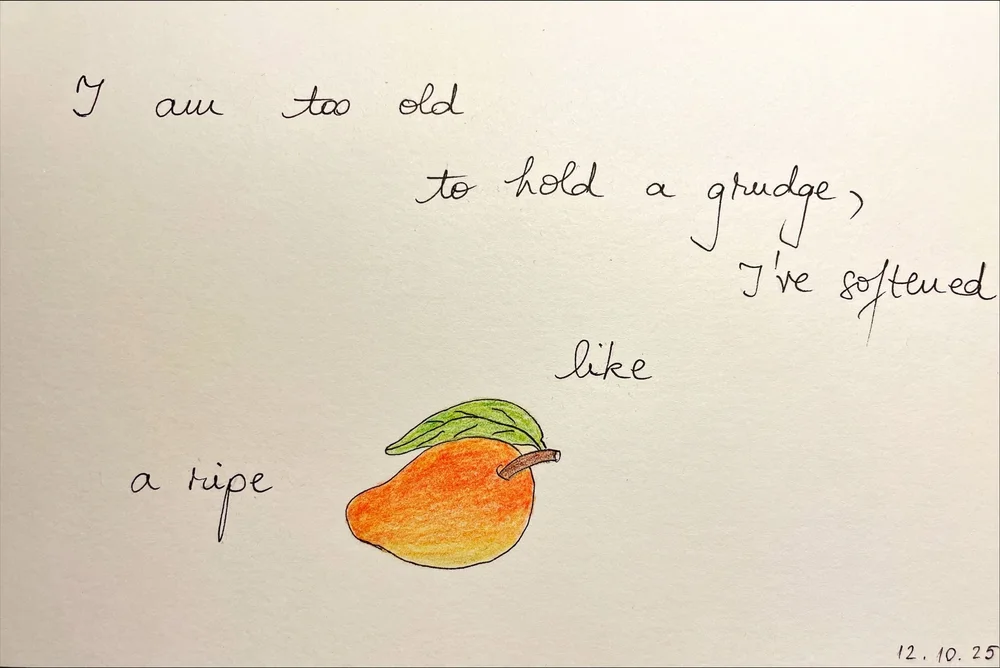 I am too old
to hold a grudge,
I've softened
like
a ripe
12.10.25